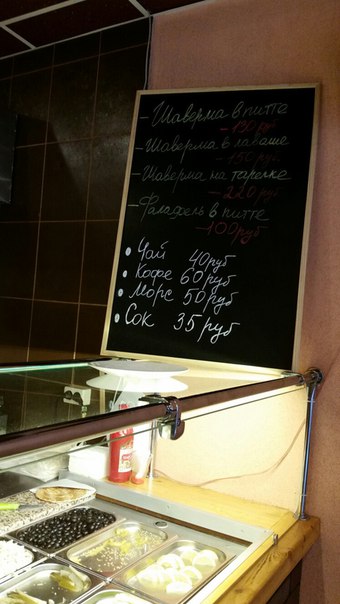 - Шаверма в питте
- 130 руб
- Шаверма в лаваше
- 150 руб
- Шаверма на тарелке
- 220 руб
- Фалафель в питте
- 100 руб
• Чай 40 руб
• Кофе 60 руб
• Морс 50 руб
• Сок 35 руб